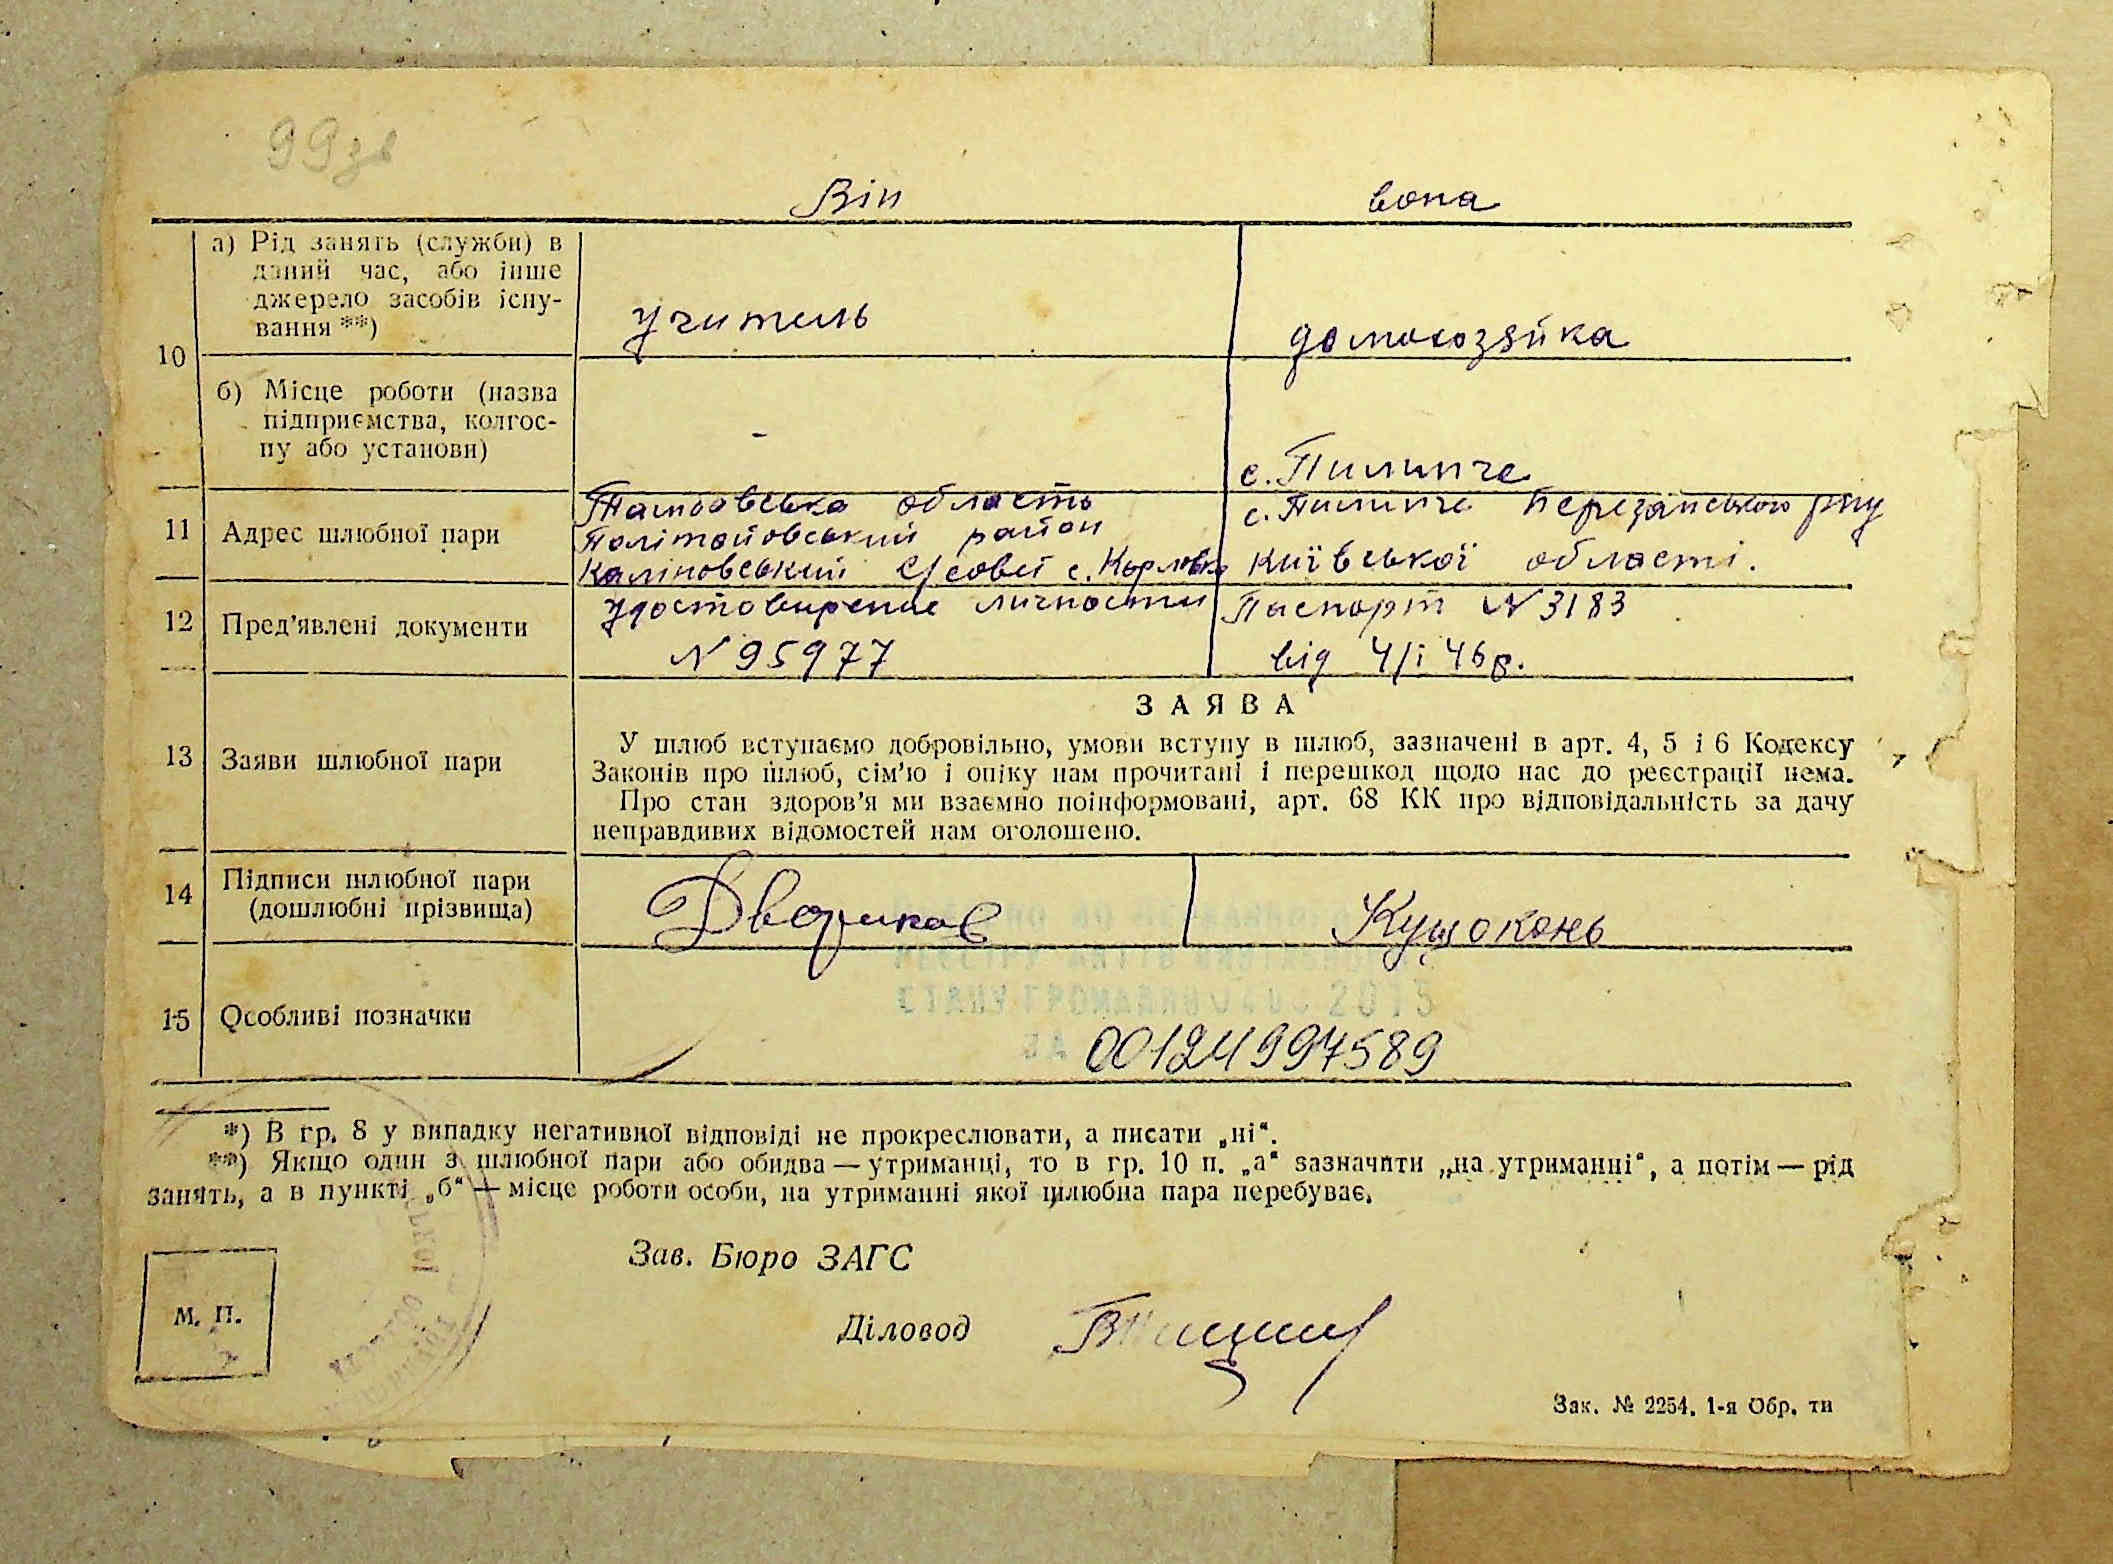 99зв
Він вона
10
а) Рід занять (служби) в
даний час, або інше
джерело засобів існу-
вання **)
учитель
домохозяйка
б) Місце роботи (назва
підприємства, колгос-
пу або установи)
-
с. Пилипче
11
Адрес шлюбної пари
область
район
с/совет с.
с. Пилипче Березанського р-ну
Київської області.
12
Пред'явлені документи
личности
N 95977
Паспорт N 3183
від 4/І 46 р.
13
Заяви шлюбної пари
ЗАЯВА
У шлюб вступаємо добровільно, умови вступу в шлюб, зазначені в арт. 4, 5 і 6 Кодексу
Законів про шлюб, сім'ю і опіку нам прочитані і перешкод щодо нас до реєстрації нема.
Про стан здоров'я ми взаємно поінформовані, арт. 68 КК про відповідальність за дачу
неправдивих відомостей нам оголошено.
14
Підписи шлюбної пари
(дошлюбні прізвища)
Кущоконь
СТАНУ ГРОМАДЯН 2015
ЗА
15
Особливі позначки
00124997589
*) В гр. 8 у випадку негативної відповіді не прокреслювати, а писати „ні“.
**) Якщо один з шлюбної пари або обидва — утриманці, то в гр. 10 п. „а“ зазначити „на утриманні“, а потім — рід
занять, а в пункті „б“ — місце роботи особи, на утриманні якої шлюбна пара перебуває.
Зав. Бюро ЗАГС
Діловод
М. П.
Зак. № 2254. 1-я Обр. ти